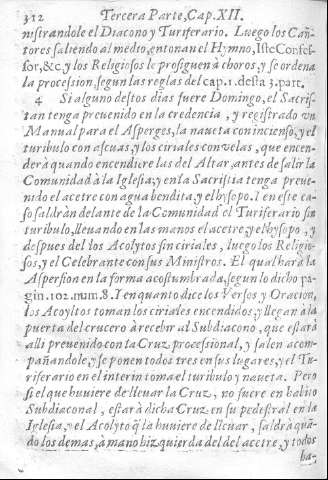 312 Tercera Parte, Cap. XII.
nistrandole el Diacono y Turiferario. Luego los Cã-
tores saliendo al médio, entonan el Hymno, Iste Confes-
sor, &c. y los Religiosos le prosiguen à choros, y se ordena
la procession, segun las reglas del cap. 1. desta 3. part.
4 Si alguno destos dias fuere Domingo, el Sacris-
tan tenga prevenido en la credencia, y registrado vn
Manual para el Asperges, la naueta con incienso, y el
turibulo con ascuas, y los ciriales con velas, que encen-
derà quando encendiere las del Altar, antes de salir la
Comunidad à la Iglesia; y en la Sacristia tenga preue-
nido el acetre con agua bendita, y el hysopo. I en este ca-
so saldràn delante de la Comunidad el Turiferario sin
turibulo, lleuando en las manos el acetre, y el hysopo, y
despues del los Acolytos sin ciriales, luego los Religio-
sos, y el Celebrante con sus Ministros. El qual harà la
Aspersion en la forma acostumbrada, segun lo dicho pa-
gin. 102. num. 8. I en quanto dice los Versos y Oracion,
los Acolytos toman los ciriales encendidos, y llegan à la
puerta del crucero à recebir al Subdiacono, que estarà
alli preuenido con la Cruz processional, y salen acom-
pañandole, y se ponen todos tres en sus lugares, y el Tu-
riferario en el interin toma el turibulo y naueta. Pero
si el que huuiere de lleuar la Cruz, no fuere en habito
Subdiaconal, estarà dicha Cruz en su pedestral en la
Iglesia, y el Acolyto q̃ la huuiere de lleuar, saldrà quã-
do los demas, à mano hizquierda del del acetre, y todos
ha-